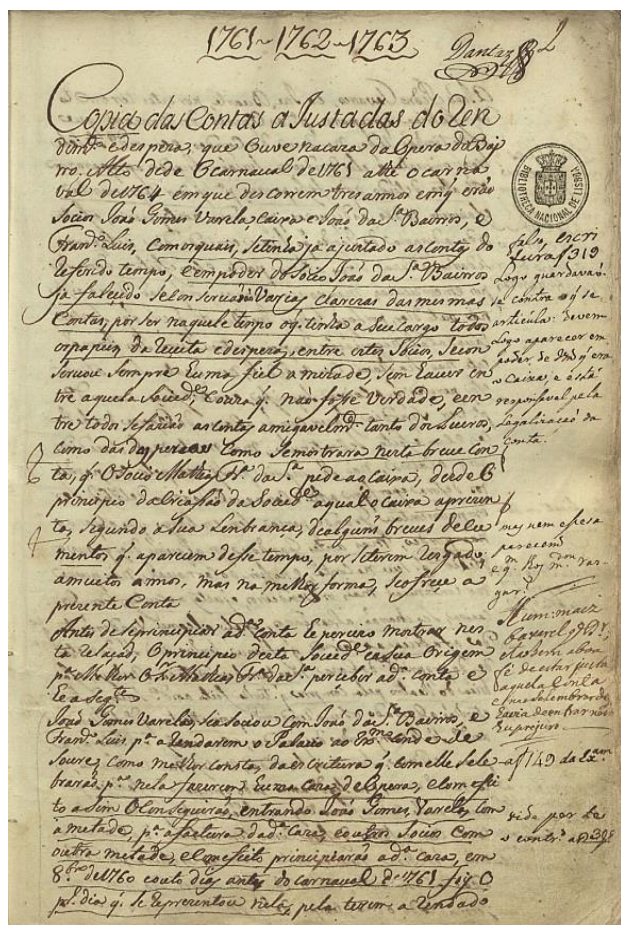 1761-1762-1763
Dantas
2
Copia das Contas a Justadas do Ren
dimto e despeza, que Ouve na caza da Opera do Baj
rro Alto desde O carnaval de 1761 athé o carna
val de 1764 em que descorrem tres annos em q erão
Socios João Gomes Varela, Caixa e João da Sa Bairros, e
Frando Luis, Com os quais, se tinha ja ajustado as contas do
Referido tempo, e em poder do Socio João da Sa Bairros
ja falecido se Conservarão Varias clarezas das mesmas
Contas, por ser naquele tempo o q. tinha a Seu Cargo todos
os papeis da Receita e despeza, entre estes Socios, se con
servou sempre huma fiel amizade, sem haver en
tre aquela Sociede Couza q. não fosse Verdade, e en
tre todos se fazião as contas amigavelmte tanto dos Lucros,
como das despezas como Se mostrara nesta breve Con
ta, q. O Socio Mathias Fra da Sa pede ao Caixa, desde O
principio da Criassão da Sociede a qual o Caixa aprezen
ta, segundo a Sua Lenbrança, de alguns breves docu
mentos q. aparecem desse tempo, por se terem Rasgado
a muitos annos, mas na melhor forma, se ofreçe a
prezente Conta
Antes de se principiar a da conta he percizo mostrar nes
ta relação, O principio desta Sociede e a sua Origem
pa Melhor O Sr Mathias Fra da Sa perceber a da conta e
he a segte
João Gomes Varela, se asociou com João da Sa Bairros, e
Frando Luis pa aRendarem o Palacio ao Exmo Conde de
Soure, Como melhor consta, da escritura q. com elle sele
brarão, pa nela fazerem huma Caza de Opera, e com efei
to asim O conseguirão, entrando João Gomes Varela com
a metade, pa a factura da da Caza, e os dous Socios Com
outra metade, e com efeito principiarão a da caza, em
8.bro de 1760 e outo dias antes do Carnaval de 1761 foy O
pro dia q. se Reprezentou nela, pela terem aRendado
falso, escri
tura f 319
Logo guardavaõ
se contra o q se
articula: devem
Logo aparecer em
poder de
o Caixa, e está
responsavel pela
Legalização da
Conta.
mas nem essas
parecem
gar?
aquela Conta
af 149
BIBLIOTHECA NACIONAL DE LISBOA